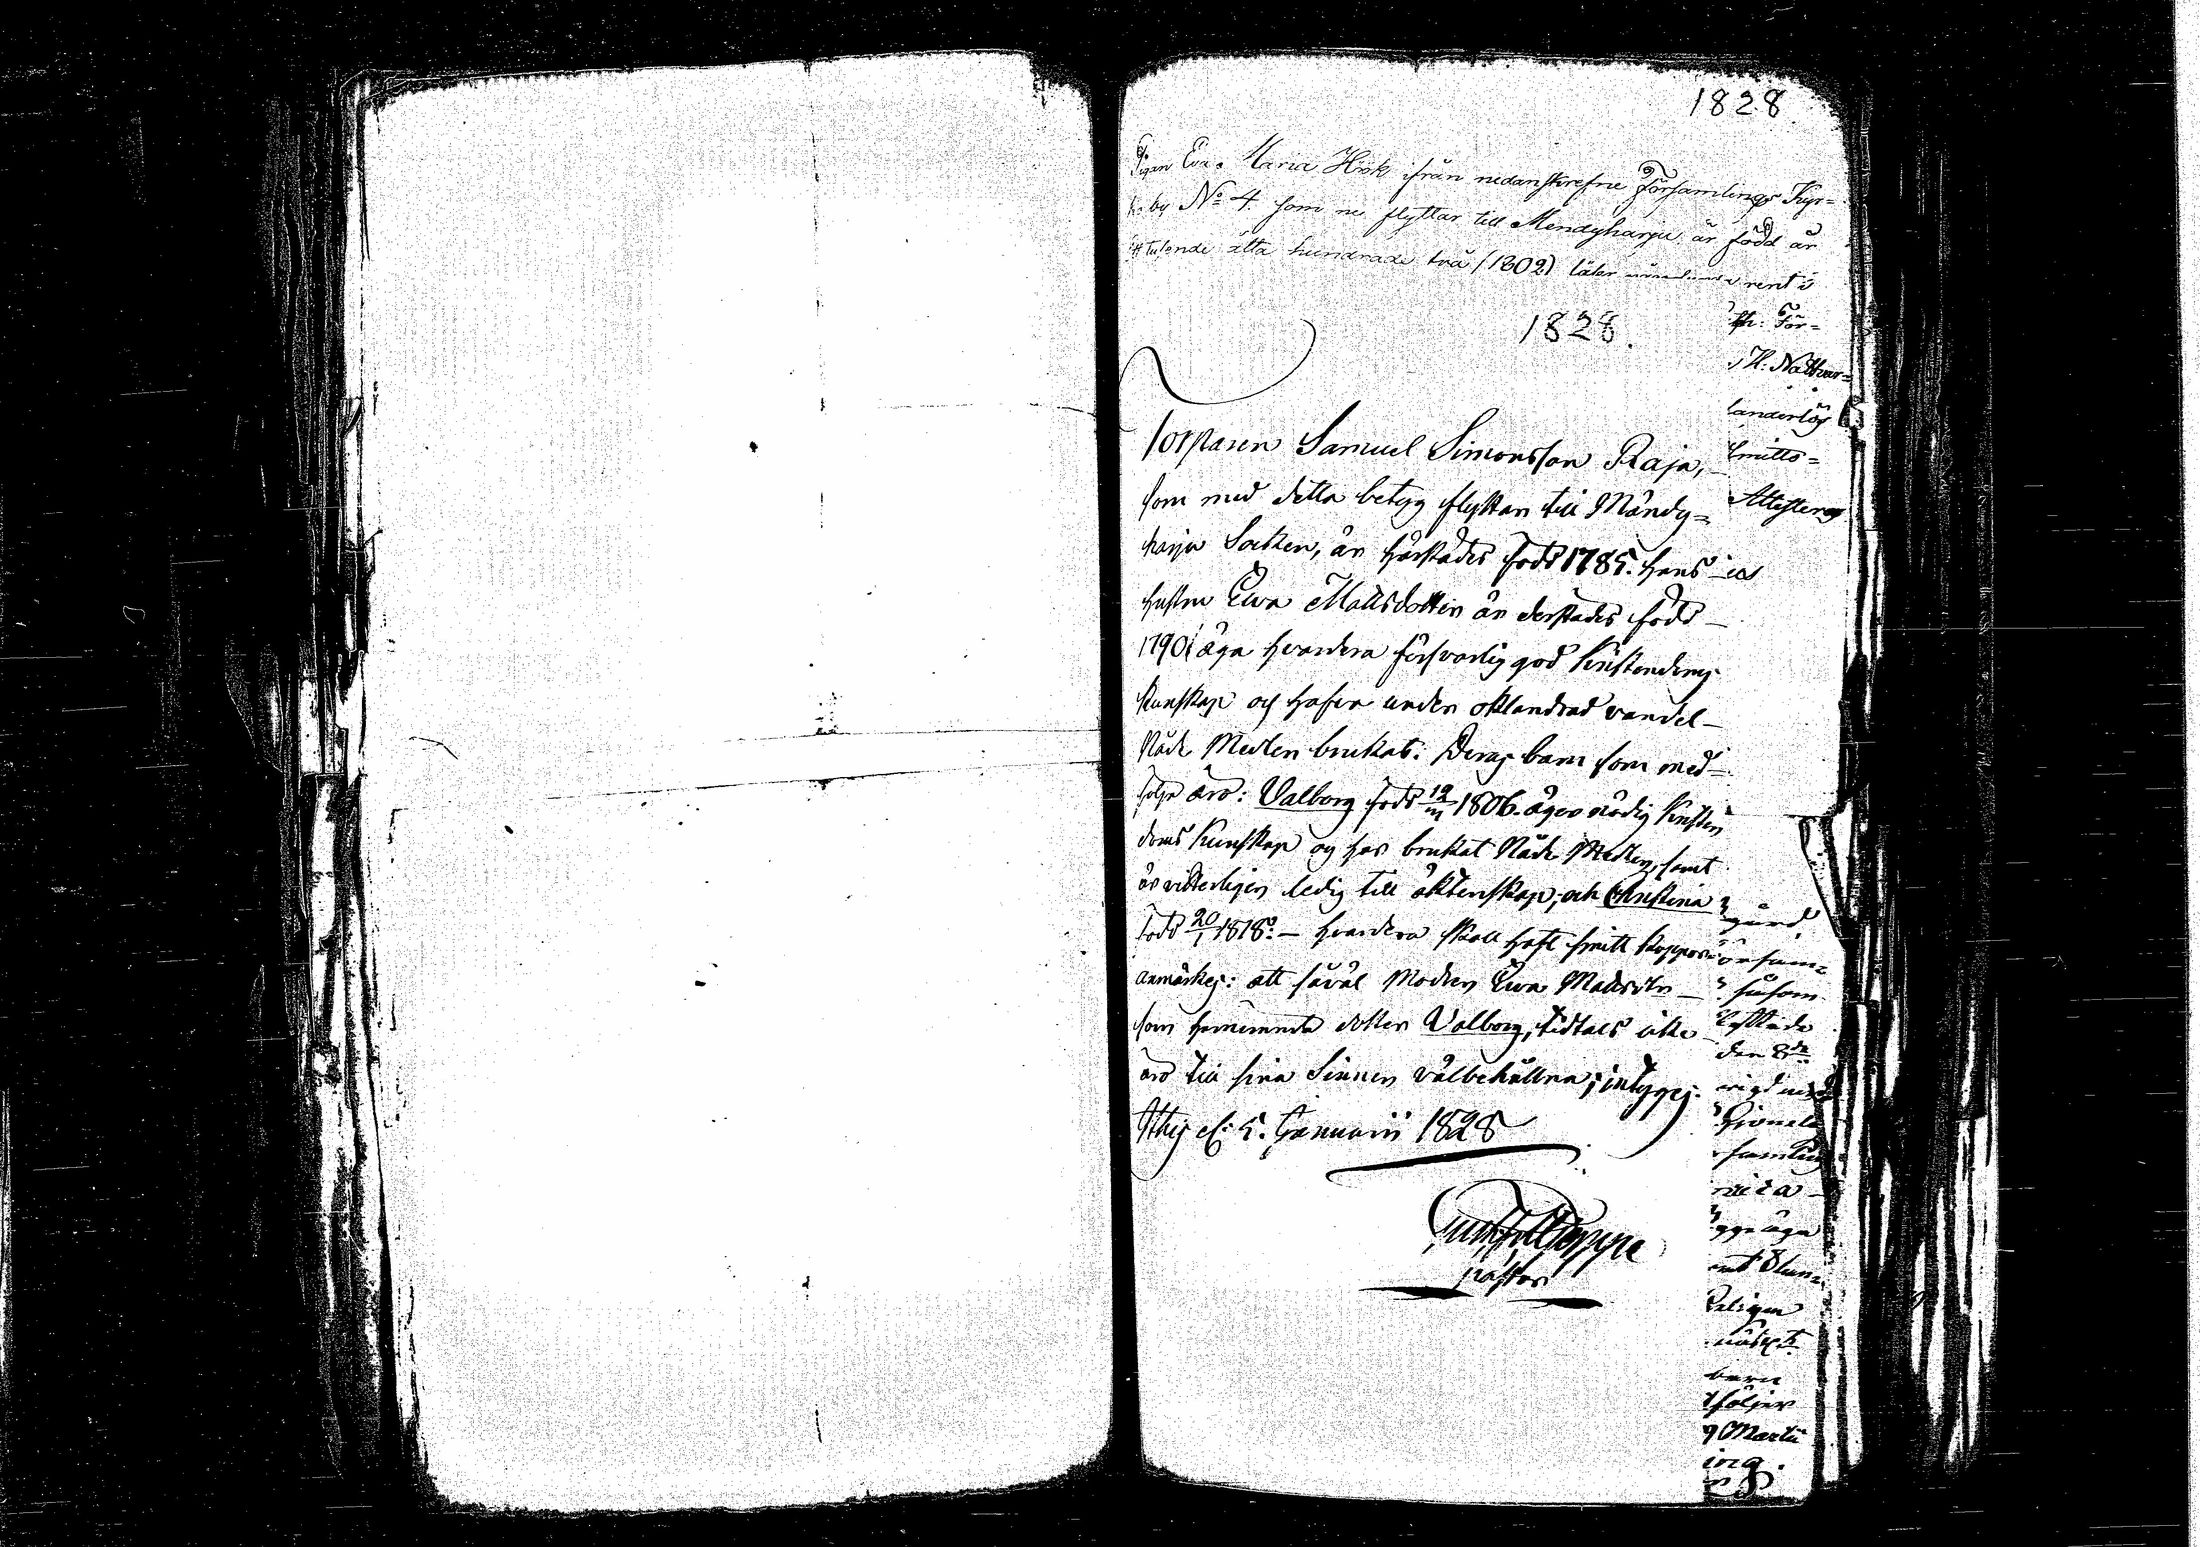 1828
Pigan Eva Maria Hök ifrån nedanskrefne Församlings Kyr=
ko by No 4. som nu flyttar till Mendyharju är född år
ett tusende åtta hundrade två (1802) läser rent i
1828.
För=
H: Nattvar=
landerlös
smitto=
Attesteras
Torparen Samuel Simonsson Raja,
som med detta betyg flyttar till Mändy=
harju Socken, är härstädes född 1785. hans
hustru Ewa Mattsdotter är derstädes född
1790, äga hvardera försvarlig god Kristendoms
kunskap och hafva under oklandrad vandel
Nåde Medlen brukat: Deras barn som med
följa äro: Valborg född 12/m 1806. äger nödig Kristen
doms Kunskap och har brukat Nåde Medlen, samt
är vitterligen ledig till äktenskap; och Christina
född 20/1 1818: hvardera skall haft smitt koppor:
anmärkes: att såväl Modren Ewa Mattsdtr
som dottren Valborg, tidtals icke
äro till sina Sinnen välbehållna; intygas.
d: 5. Januarii 1828
Pastor
gård
örsam=
såsom
den 8de
samling
äga
barn
följer
Martii